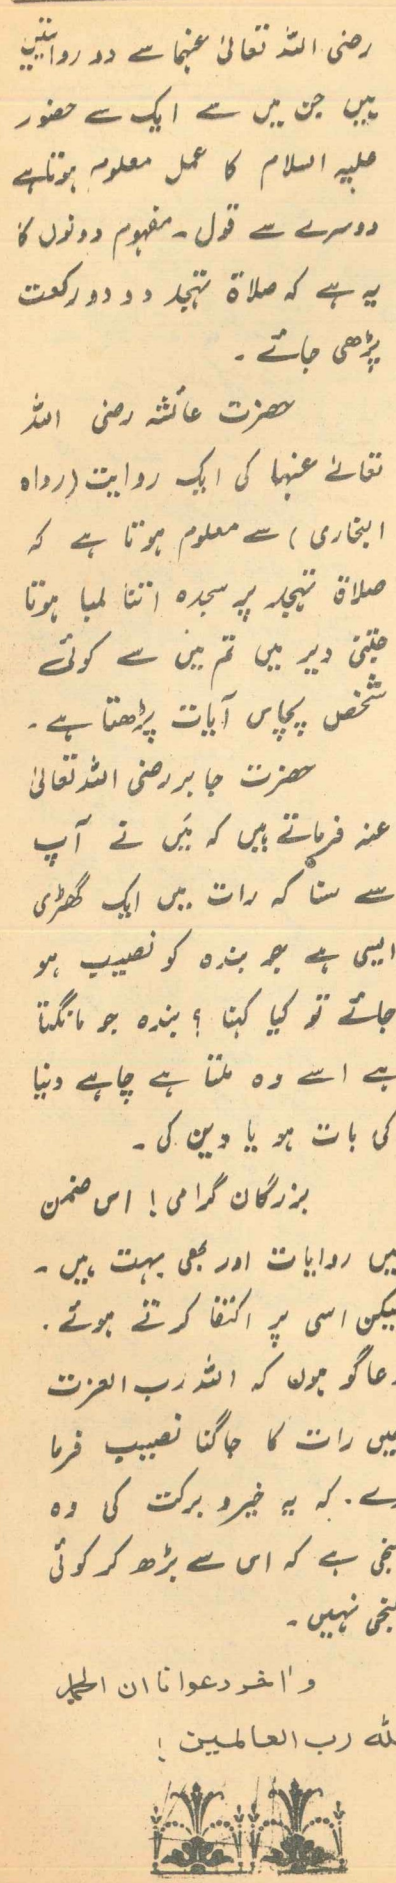 رضی اللہ تعالیٰ عنہما سے دو روایتیں
ہیں جن میں سے ایک سے حضور
علیہ السلام کا عمل معلوم ہوتا ہے
دوسرے سے قول۔ مفہوم دونوں کا
یہ ہے کہ صلاۃ تہجد دو دو رکعت
پڑھی جائے۔
حضرت عائشہ رضی اللہ
تعالےٰ عنہا کی ایک روایت (رواہ
البخاری) سے معلوم ہوتا ہے کہ
صلاۃ تہجد پر سجدہ اتنا لمبا ہوتا
جتنی دیر میں تم میں سے کوئی
شخص پچاس آیات پڑھتا ہے۔
حضرت جابر رضی اللہ تعالیٰ
عنہ فرماتے ہیں کہ میں نے آپ
سے سنا کہ رات میں ایک گھڑی
ایسی ہے جو بندہ کو نصیب ہو
جائے تو کیا کہنا ؟ بندہ جو مانگتا
ہے اسے وہ ملتا ہے چاہے دنیا
کی بات ہو یا دین کی۔
بزرگان گرامی ! اس ضمن
میں روایات اور بھی بہت ہیں۔
لیکن اسی پر اکتفا کرتے ہوئے۔
دعا گو ہوں کہ اللہ رب العزت
ہمیں رات کا جاگنا نصیب فرما
دے۔ کہ یہ خیر و برکت کی وہ
کنجی ہے کہ اس سے بڑھ کر کوئی
کنجی نہیں۔
واٰخر دعوانا ان الحمد
للہ رب العالمین !